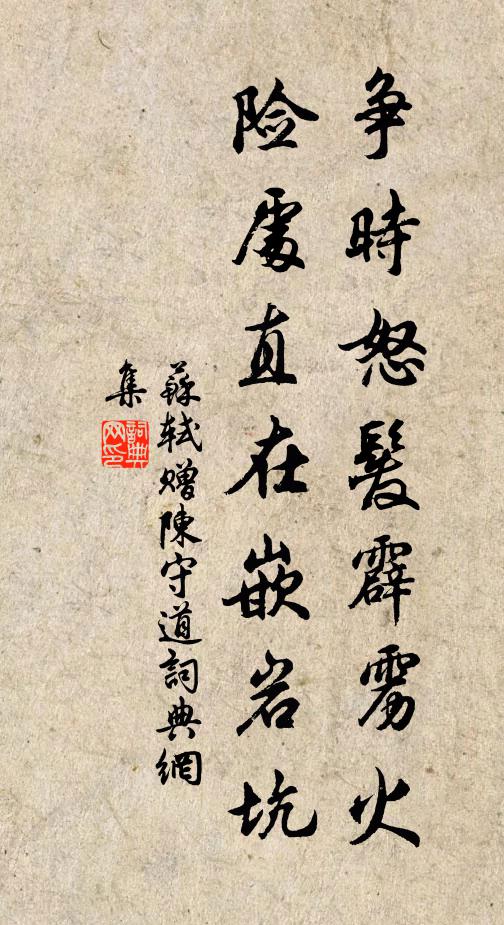 争時怒髮霹雳火
险處直在嵌岩坑
蘇轼赠陳守道詞典網
集
詞典
网印